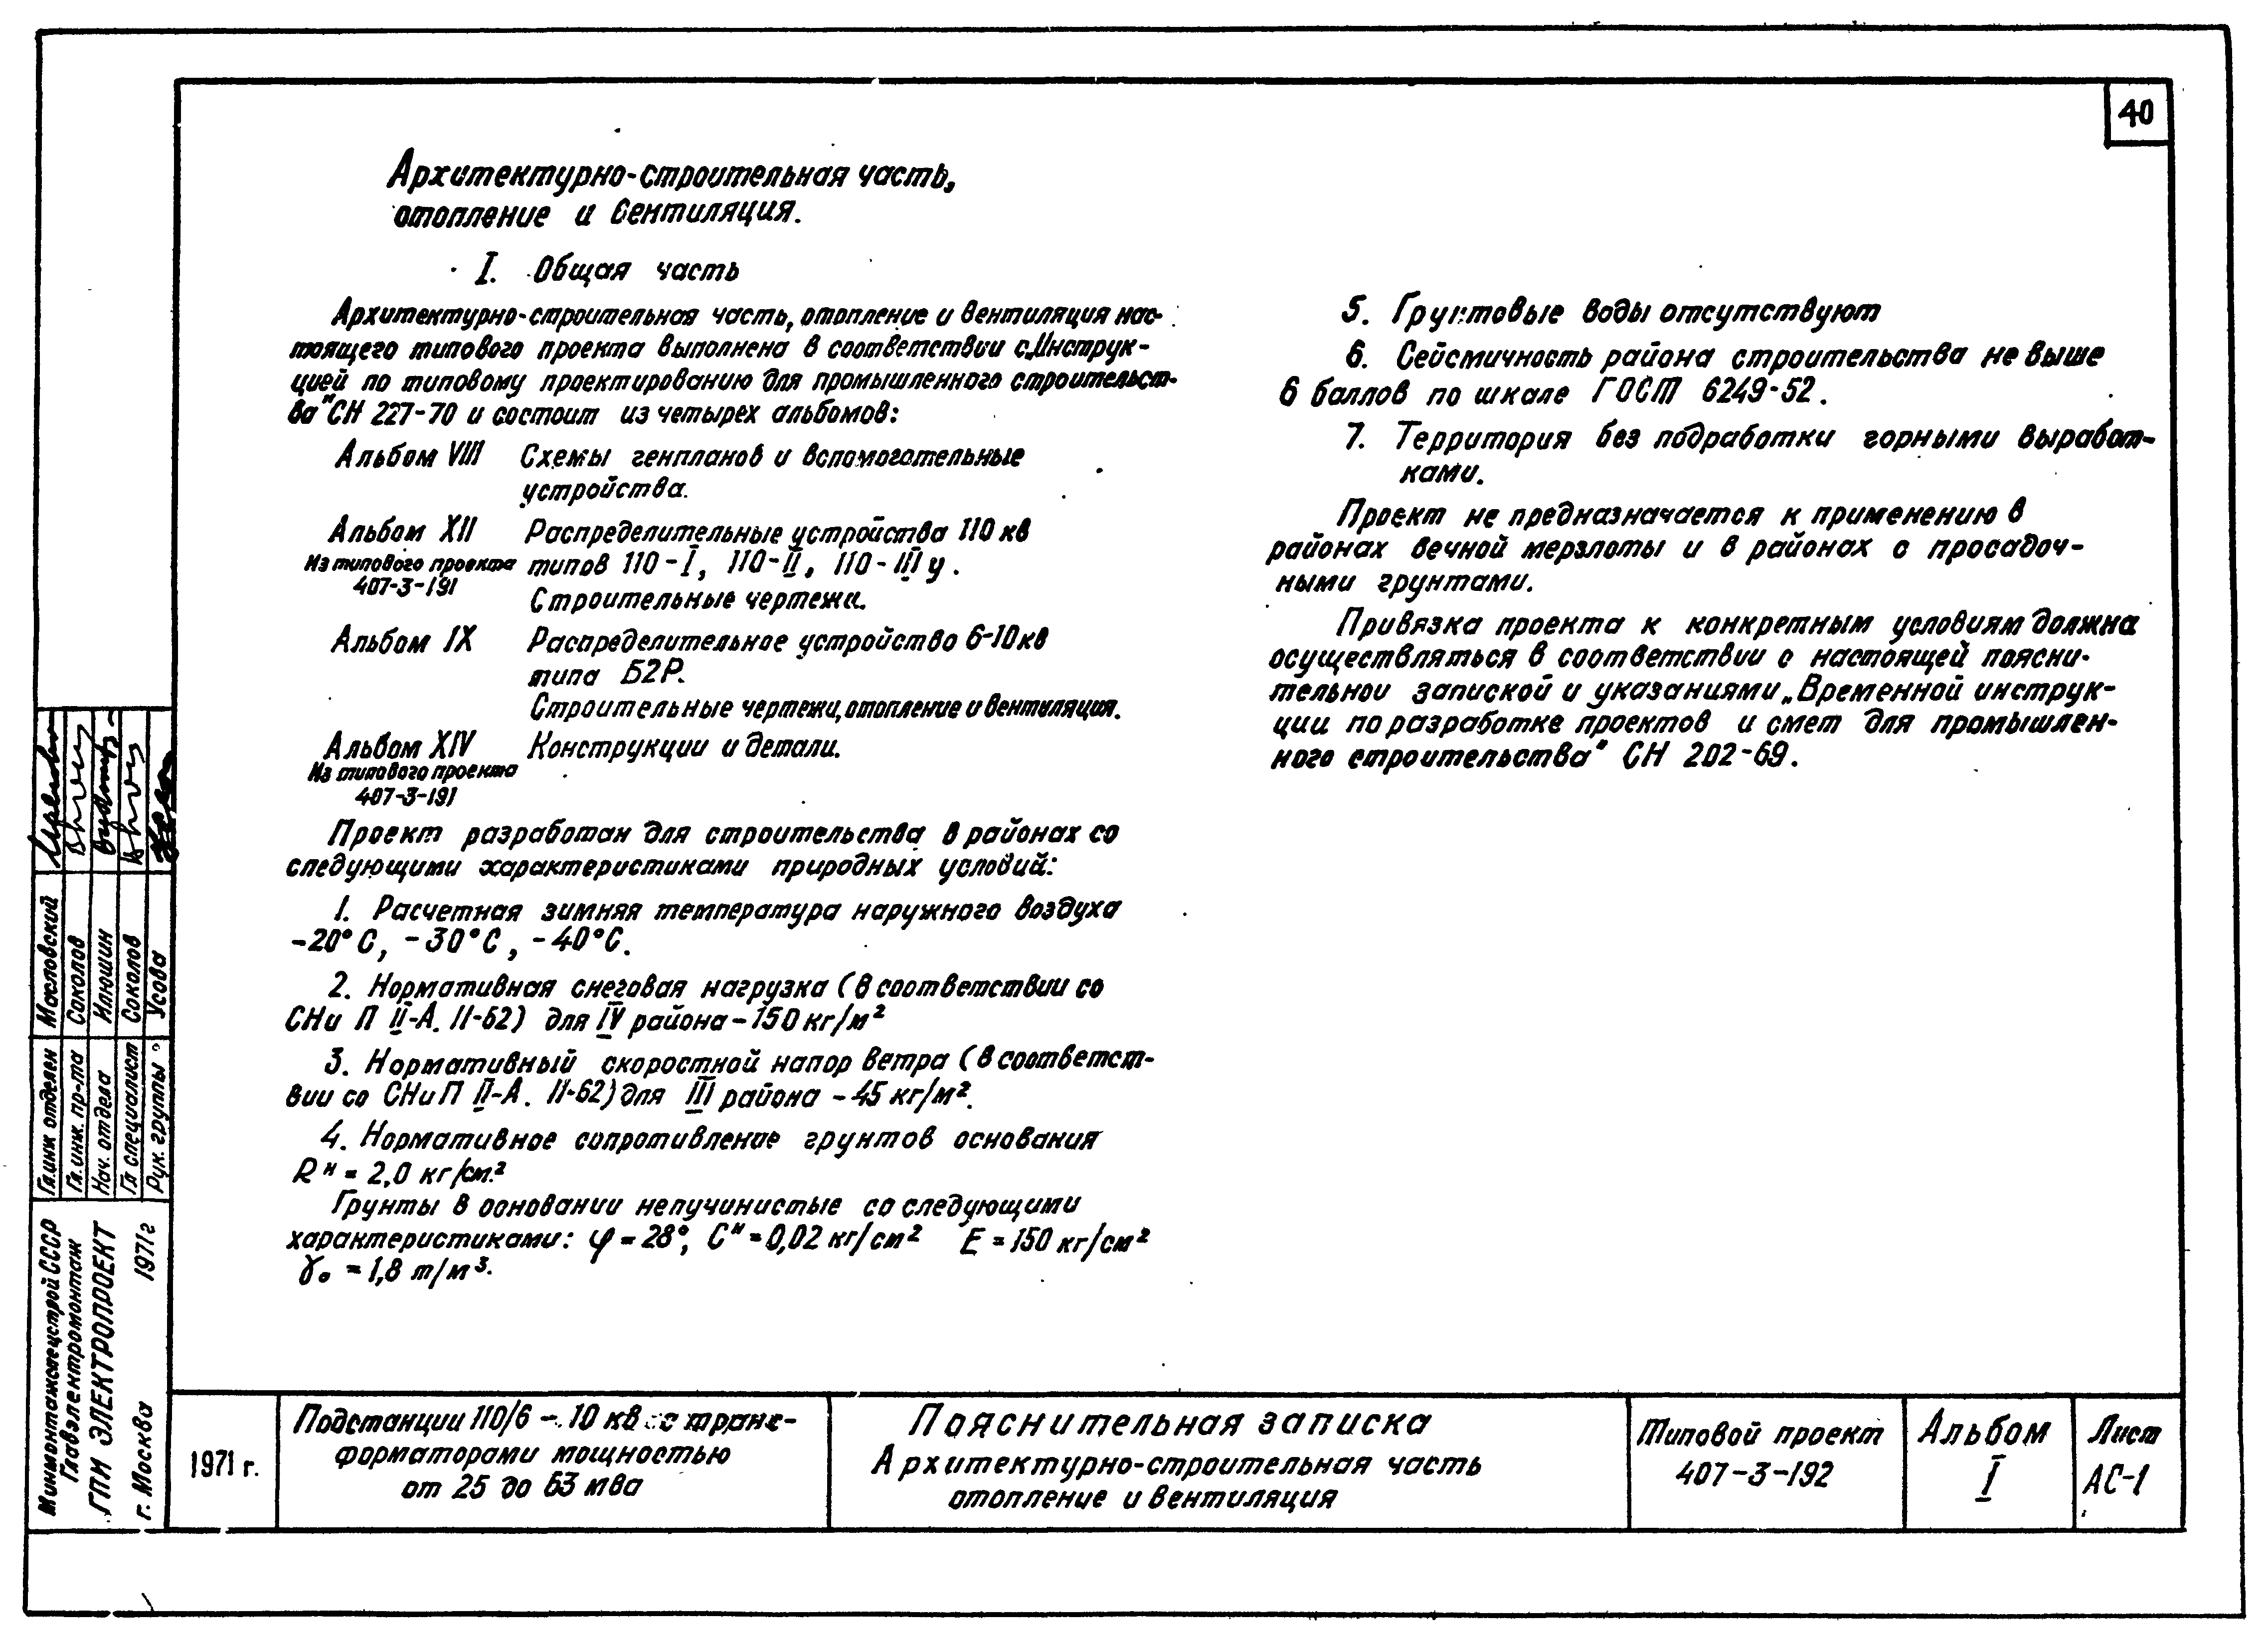 40
Архитектурно-строительная часть,
отопление и вентиляция.
I. Общая часть
Архитектурно-строительная часть, отопление и вентиляция нас-
тоящего типового проекта выполнена в соответствии с „Инструк-
цией по типовому проектированию для промышленного строительст-
ва" СН 227-70 и состоит из четырех альбомов:
Альбом VIII Схемы генпланов и вспомогательные
устройства.
Альбом XII Распределительные устройства 110 кв
Из типового проекта типов 110-I, 110-II, 110-III у.
407-3-191
Строительные чертежи.
Альбом IX Распределительное устройство 6-10 кв
типа Б2Р.
Строительные чертежи, отопление и вентиляция.
Альбом XIV Конструкции и детали.
Из типового проекта
407-3-191
Проект разработан для строительства в районах со
следующими характеристиками природных условий:
1. Расчетная зимняя температура наружного воздуха
-20°С, -30°С, -40°С.
2. Нормативная снеговая нагрузка (в соответствии со
СНиП II-А. 11-62) для IV района - 150 кг/м²
3. Нормативный скоростной напор ветра (в соответст-
вии со СНиП II-А. 11-62) для III района - 45 кг/м².
4. Нормативное сопротивление грунтов основания
Rн = 2,0 кг/см.²
Грунты в основании непучинистые со следующими
характеристиками: φ = 28°, Cн = 0,02 кг/см² E = 150 кг/см²
γ₀ = 1,8 т/м³.
5. Грунтовые воды отсутствуют
6. Сейсмичность района строительства не выше
6 баллов по шкале ГОСТ 6249-52.
7. Территория без подработки горными выработ-
ками.
Проект не предназначается к применению в
районах вечной мерзлоты и в районах с просадоч-
ными грунтами.
Привязка проекта к конкретным условиям должна
осуществляться в соответствии с настоящей поясни-
тельной запиской и указаниями „Временной инструк-
ции по разработке проектов и смет для промышлен-
ного строительства" СН 202-69.
Гл. инж отделен Масловский
Гл. инж. пр-та Соколов
Нач. отдела Илюшин
Гл специалист Соколов
Рук. группы Усова
Минмонтажспецстрой СССР
Главэлектромонтаж
ГПИ ЭЛЕКТРОПРОЕКТ
г. Москва 1971 г
1971 г.
Подстанции 110/6 - 10 кв с транс-
форматорами мощностью
от 25 до 63 мва
Пояснительная записка
Архитектурно-строительная часть
отопление и вентиляция
Типовой проект
407-3-192
Альбом
I
Лист
АС-1